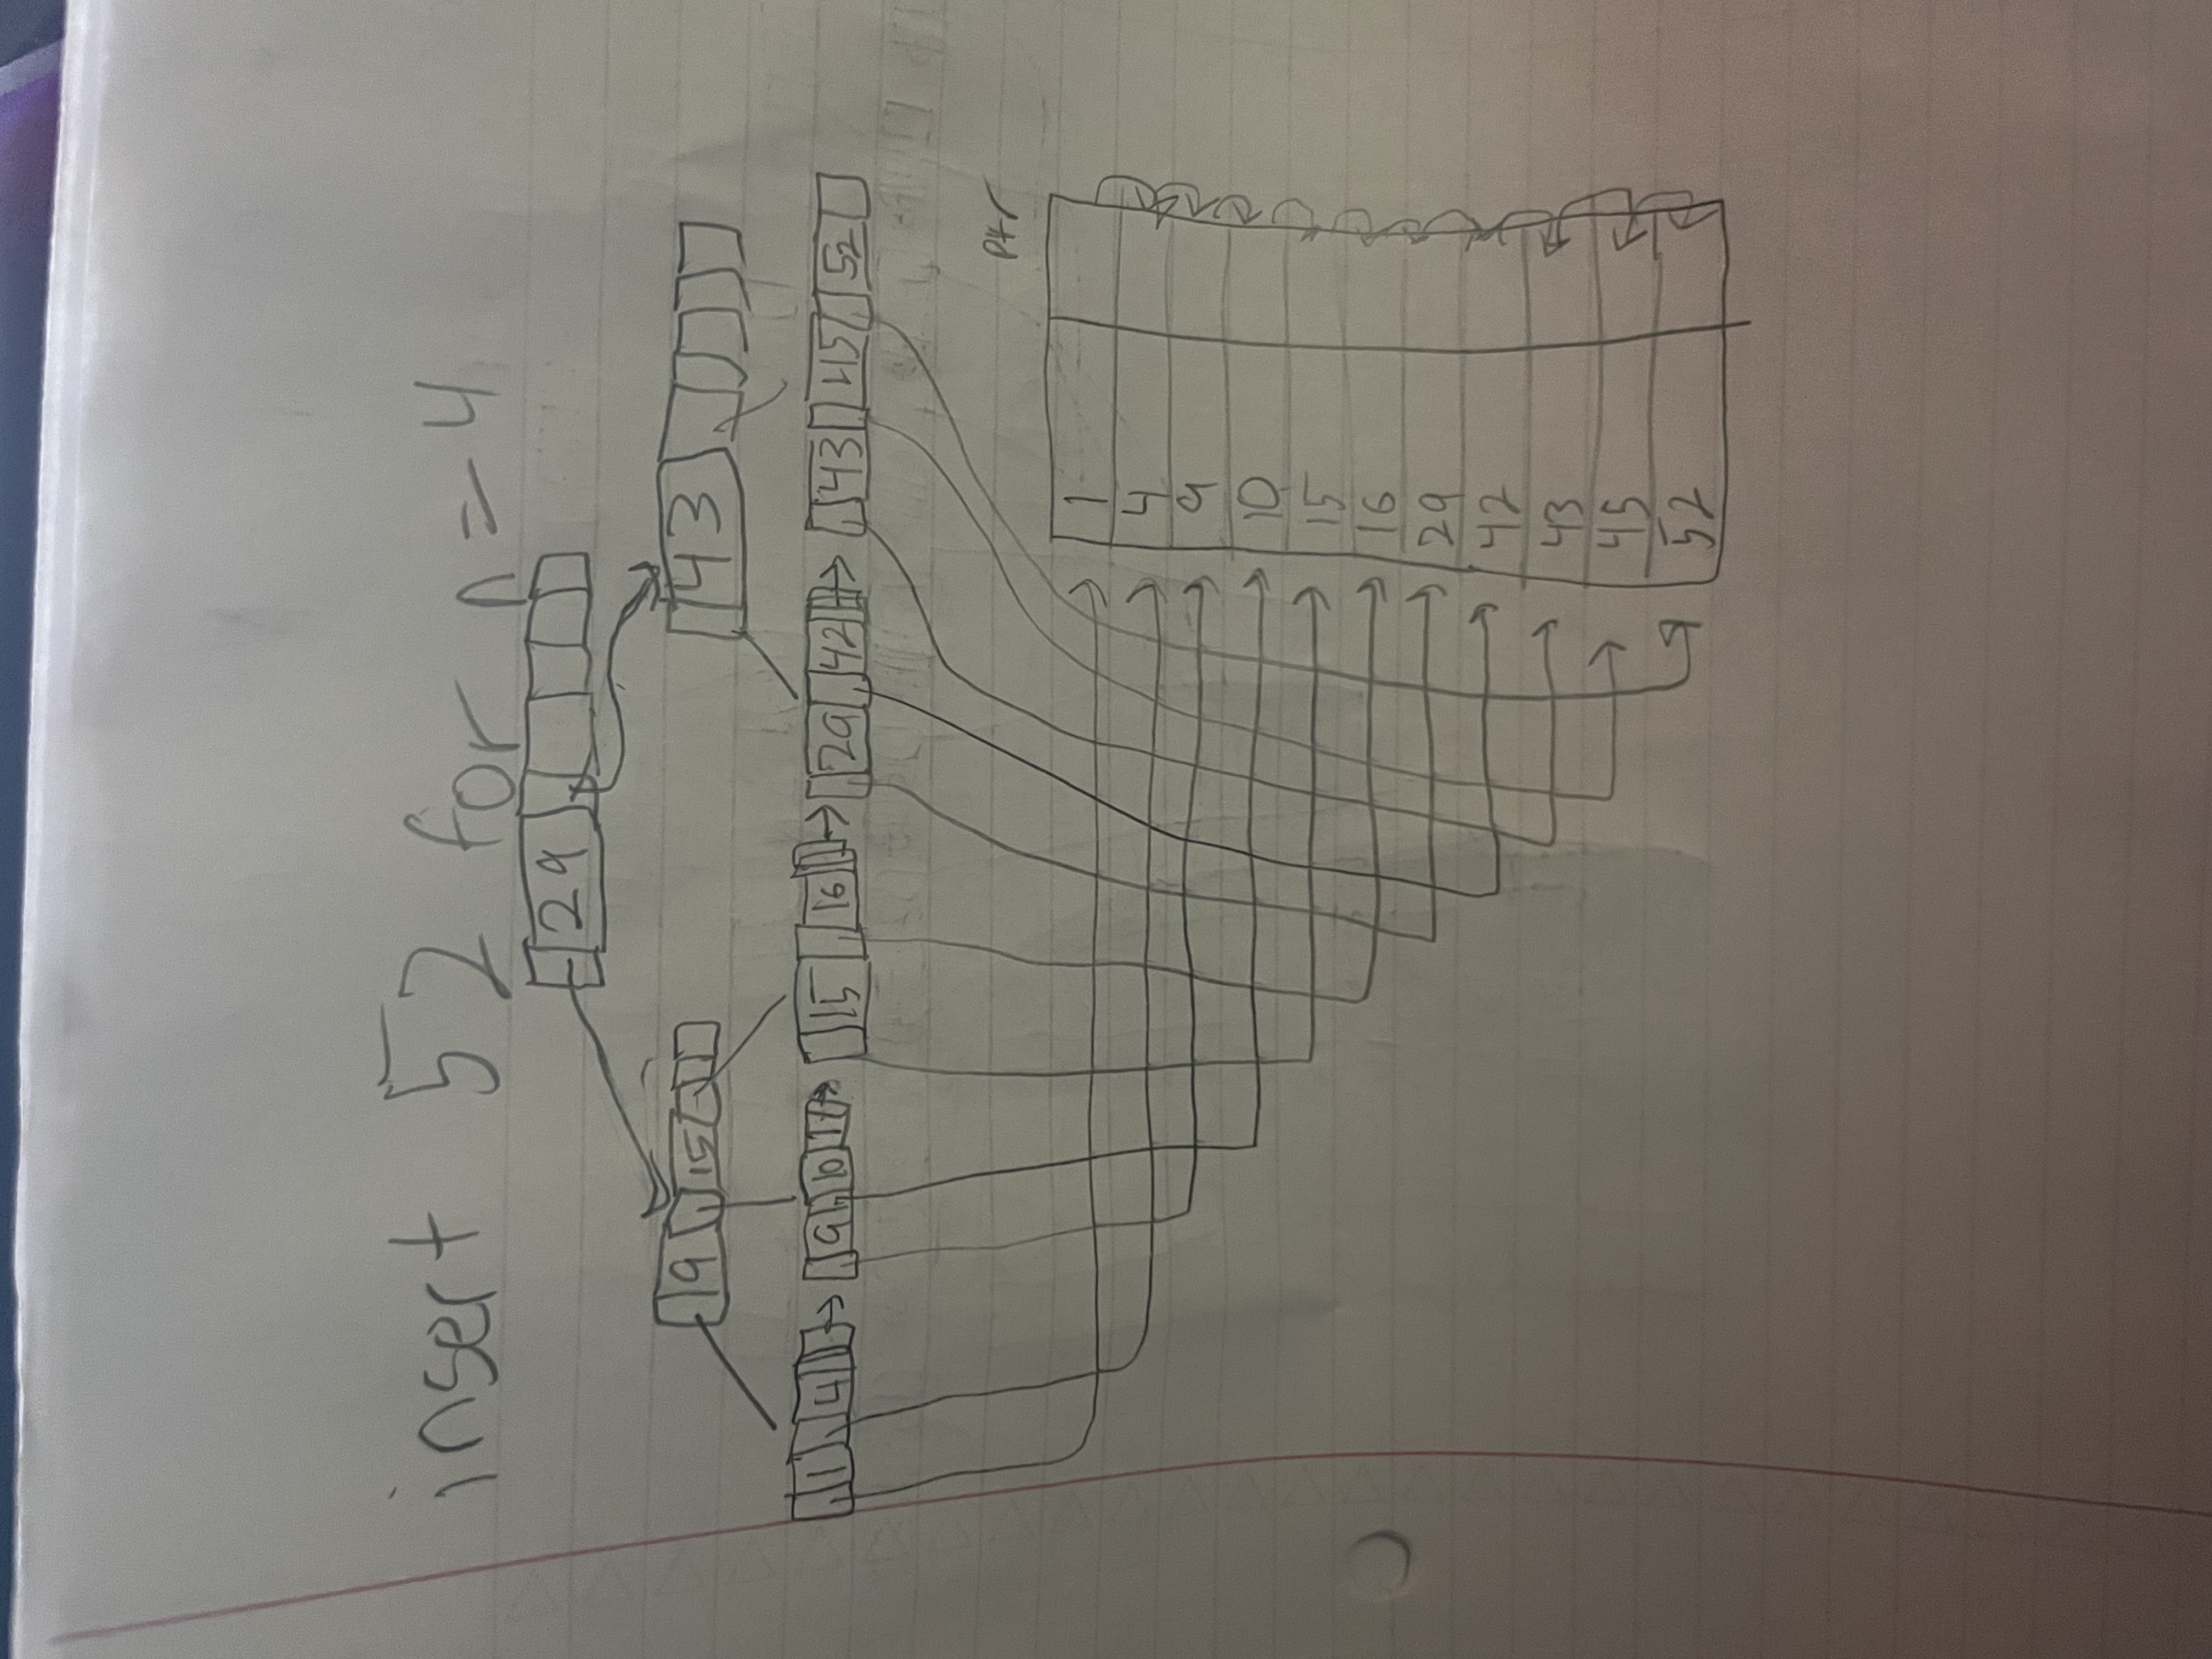 insert 52 for n=4
29
9 15 43
1 4 9 10 15 16 29 42 43 45 52
Ptr
1
4
9
10
15
16
29
42
43
45
52